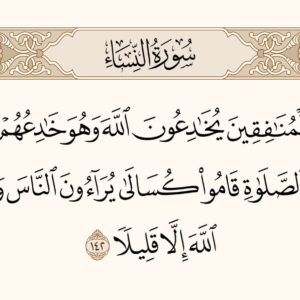 سُورَةُ النِّسَاءِ
لْمُنَٰفِقِينَ يُخَٰدِعُونَ ٱللَّهَ وَهُوَ خَٰدِعُهُمْ
لصَّلَوٰةِ قَامُوا۟ كُسَالَىٰ يُرَآءُونَ ٱلنَّاسَ وَ
ٱللَّهَ إِلَّا قَلِيلًا ١٤٢